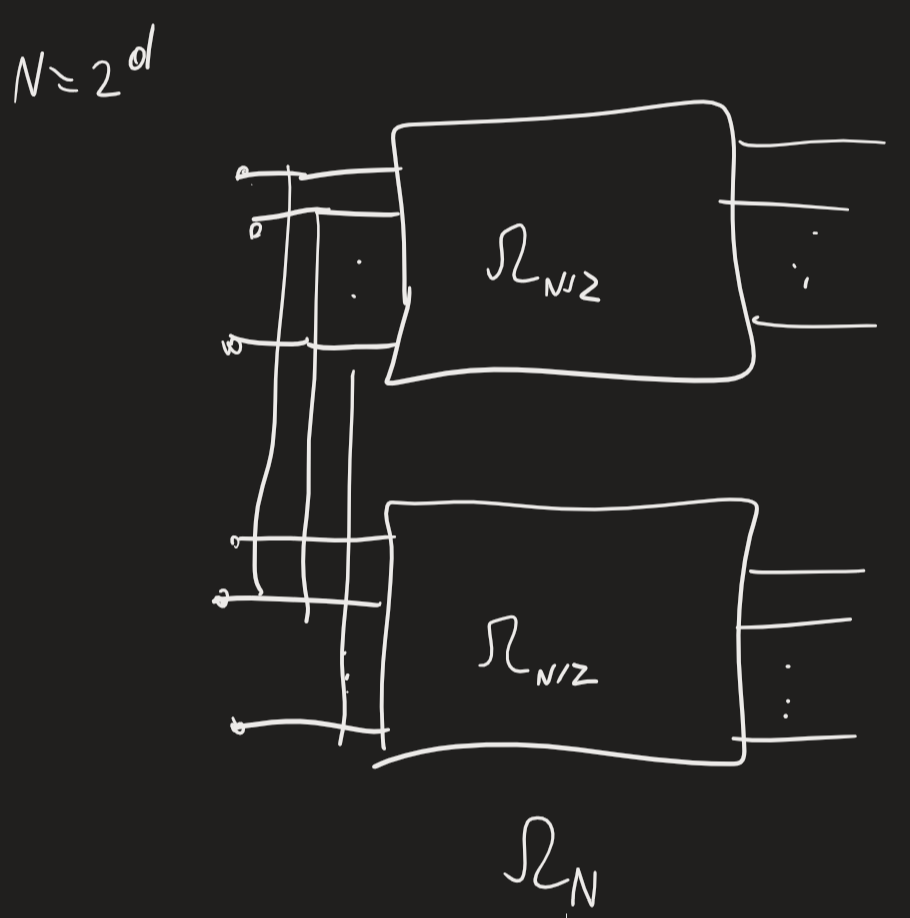 N = 2^d
Ω_{N/2}
Ω_{N/2}
Ω_N